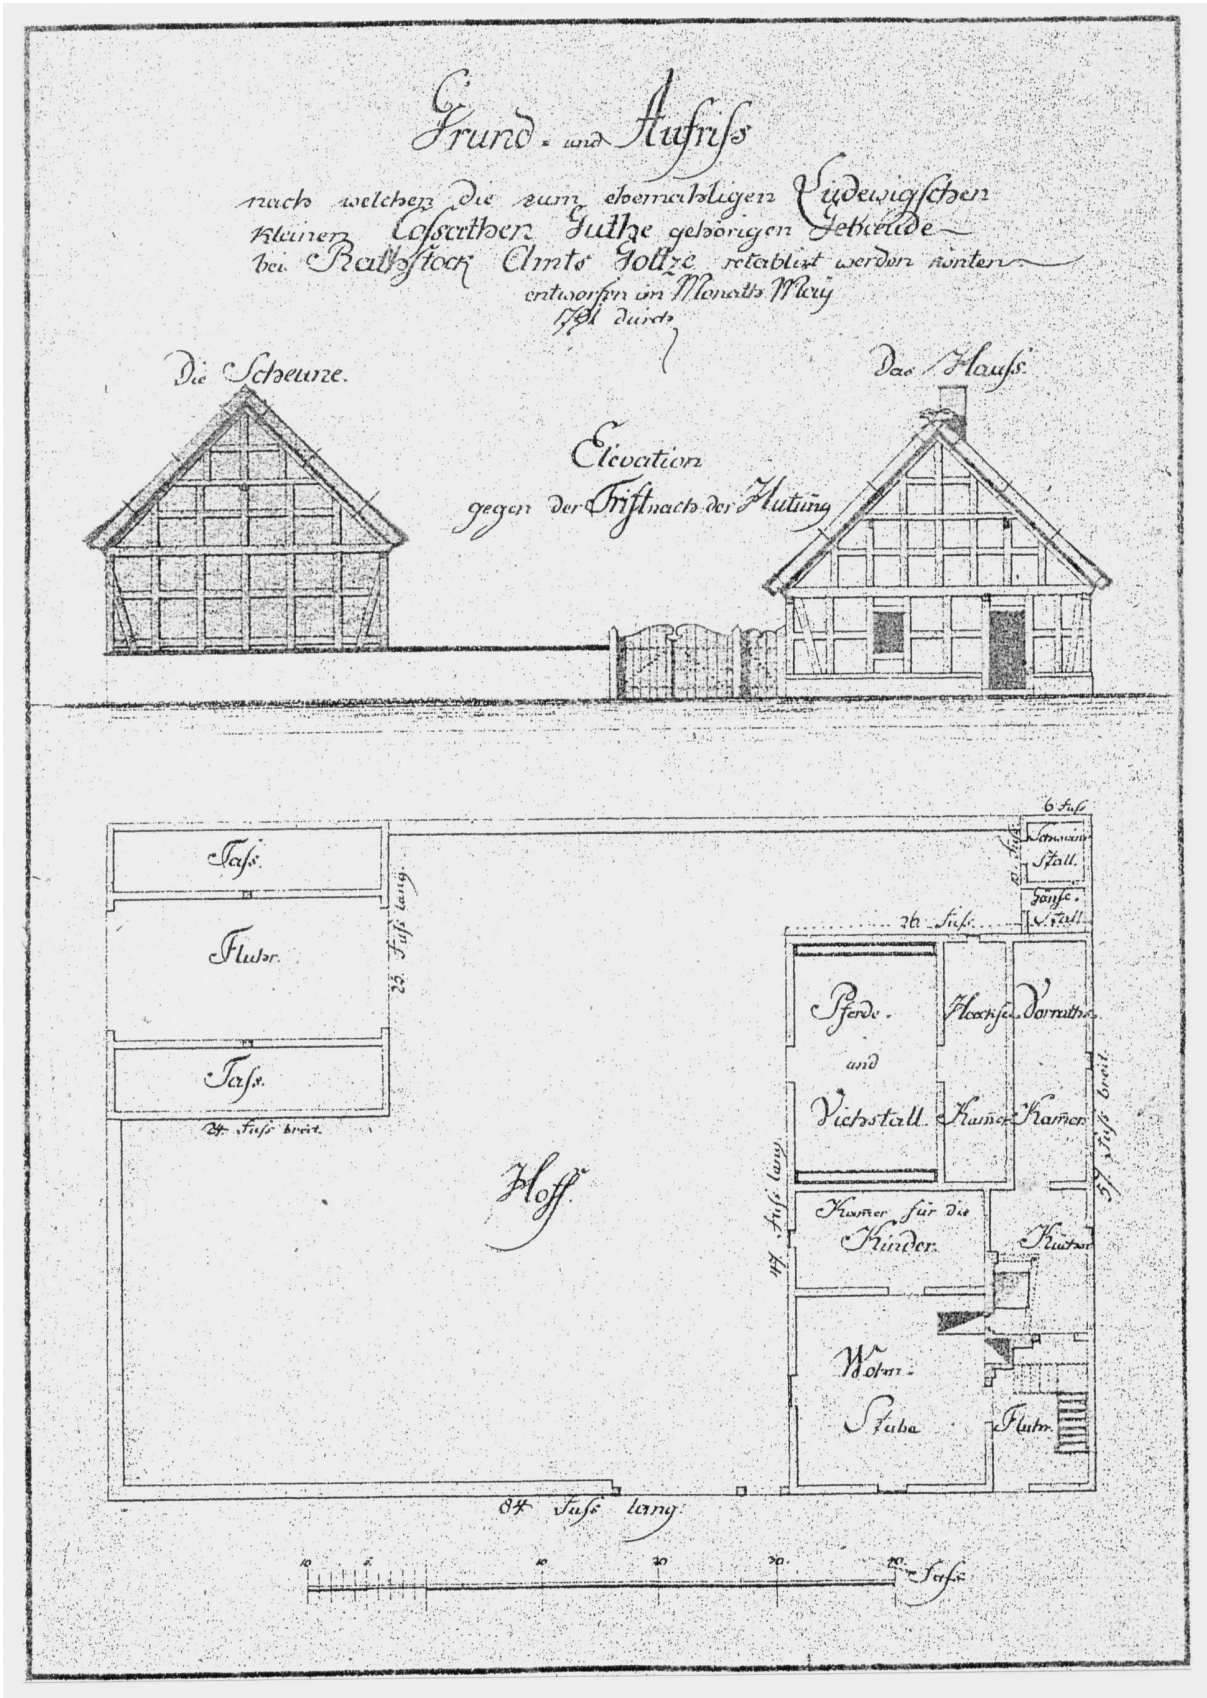 Grund- und Aufriss
nach welchen die zum ehemahligen Ludewigschen
kleinen Cossathen Guthe gehörigen Gebæude
bei Rathstock Amts Goltze retablirt werden könten
entworfen im Monath May
1791 durch
Die Scheune.
Das Hauss.
Elevation
gegen der Trift nach der Hutung
6 Fuss
Tass.
Schwein
Stall.
Gänse-
Stall
26 Fuss
Fluhr.
25. Fuss lang.
Pferde-
und
Viehstall.
Heecksel
Kamer
Vorraths
Kamer.
Tass.
24. Fuss breit.
Hoff.
47. Fuss lang
57. Fuss breit.
Kamer für die
Kinder.
Küche
Wohn-
Stube
Fluhr.
84 Fuss lang.
10 5. 10 20 30. 40. Fuss